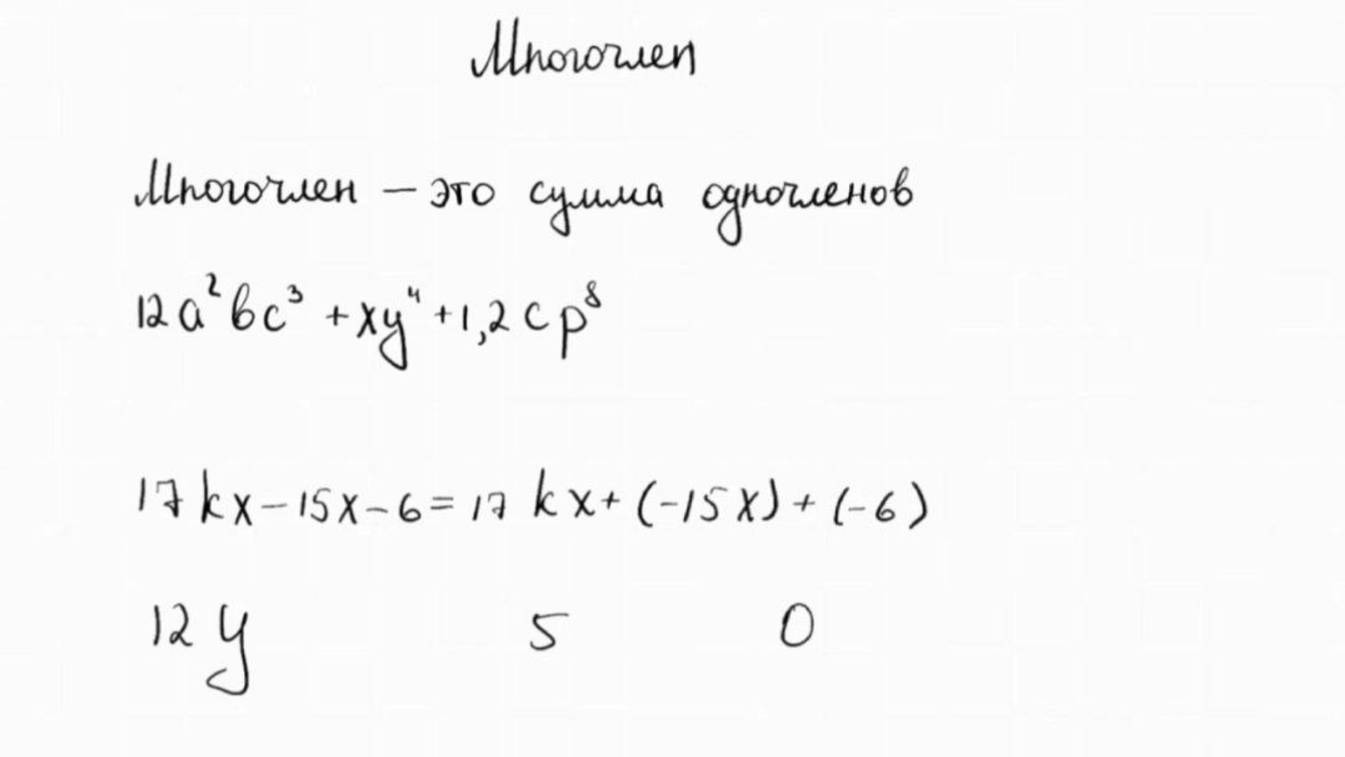 Многочлен
Многочлен – это сумма одночленов
12a²bc³ + xy⁴ + 1,2cp⁸
17kx – 15x – 6 = 17kx + (–15x) + (–6)
12y 5 0